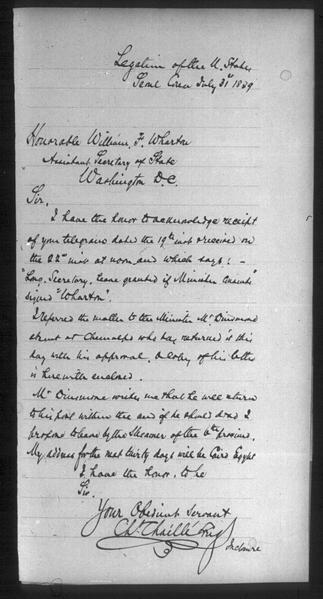 Legation of the U. States
Seoul Corea July 31st 1889
Honorable William F. Wharton
Assistant Secretary of State
Washington D.C.
Sir,
I have the honor to acknowledge receipt
of your telegram dated the 19th inst & received on
the 22nd inst at noon and which says: -
"Long, Secretary, leave granted if Minister consents"
signed "Wharton".
I referred the matter to the Minister Mr Dinsmore
absent at Chemulpo who has returned it this
day with his approval. A copy of his letter
is herewith enclosed.
Mr Dinsmore writes me that he will return
to his post within the and if he should does I
propose to leave by the Steamer of the 6th
My address for the next thirty days will be Cairo Egypt
I have the honor, to be
Sir
Your Obedient Servant
Ch. Chaillé Long
Inclosure